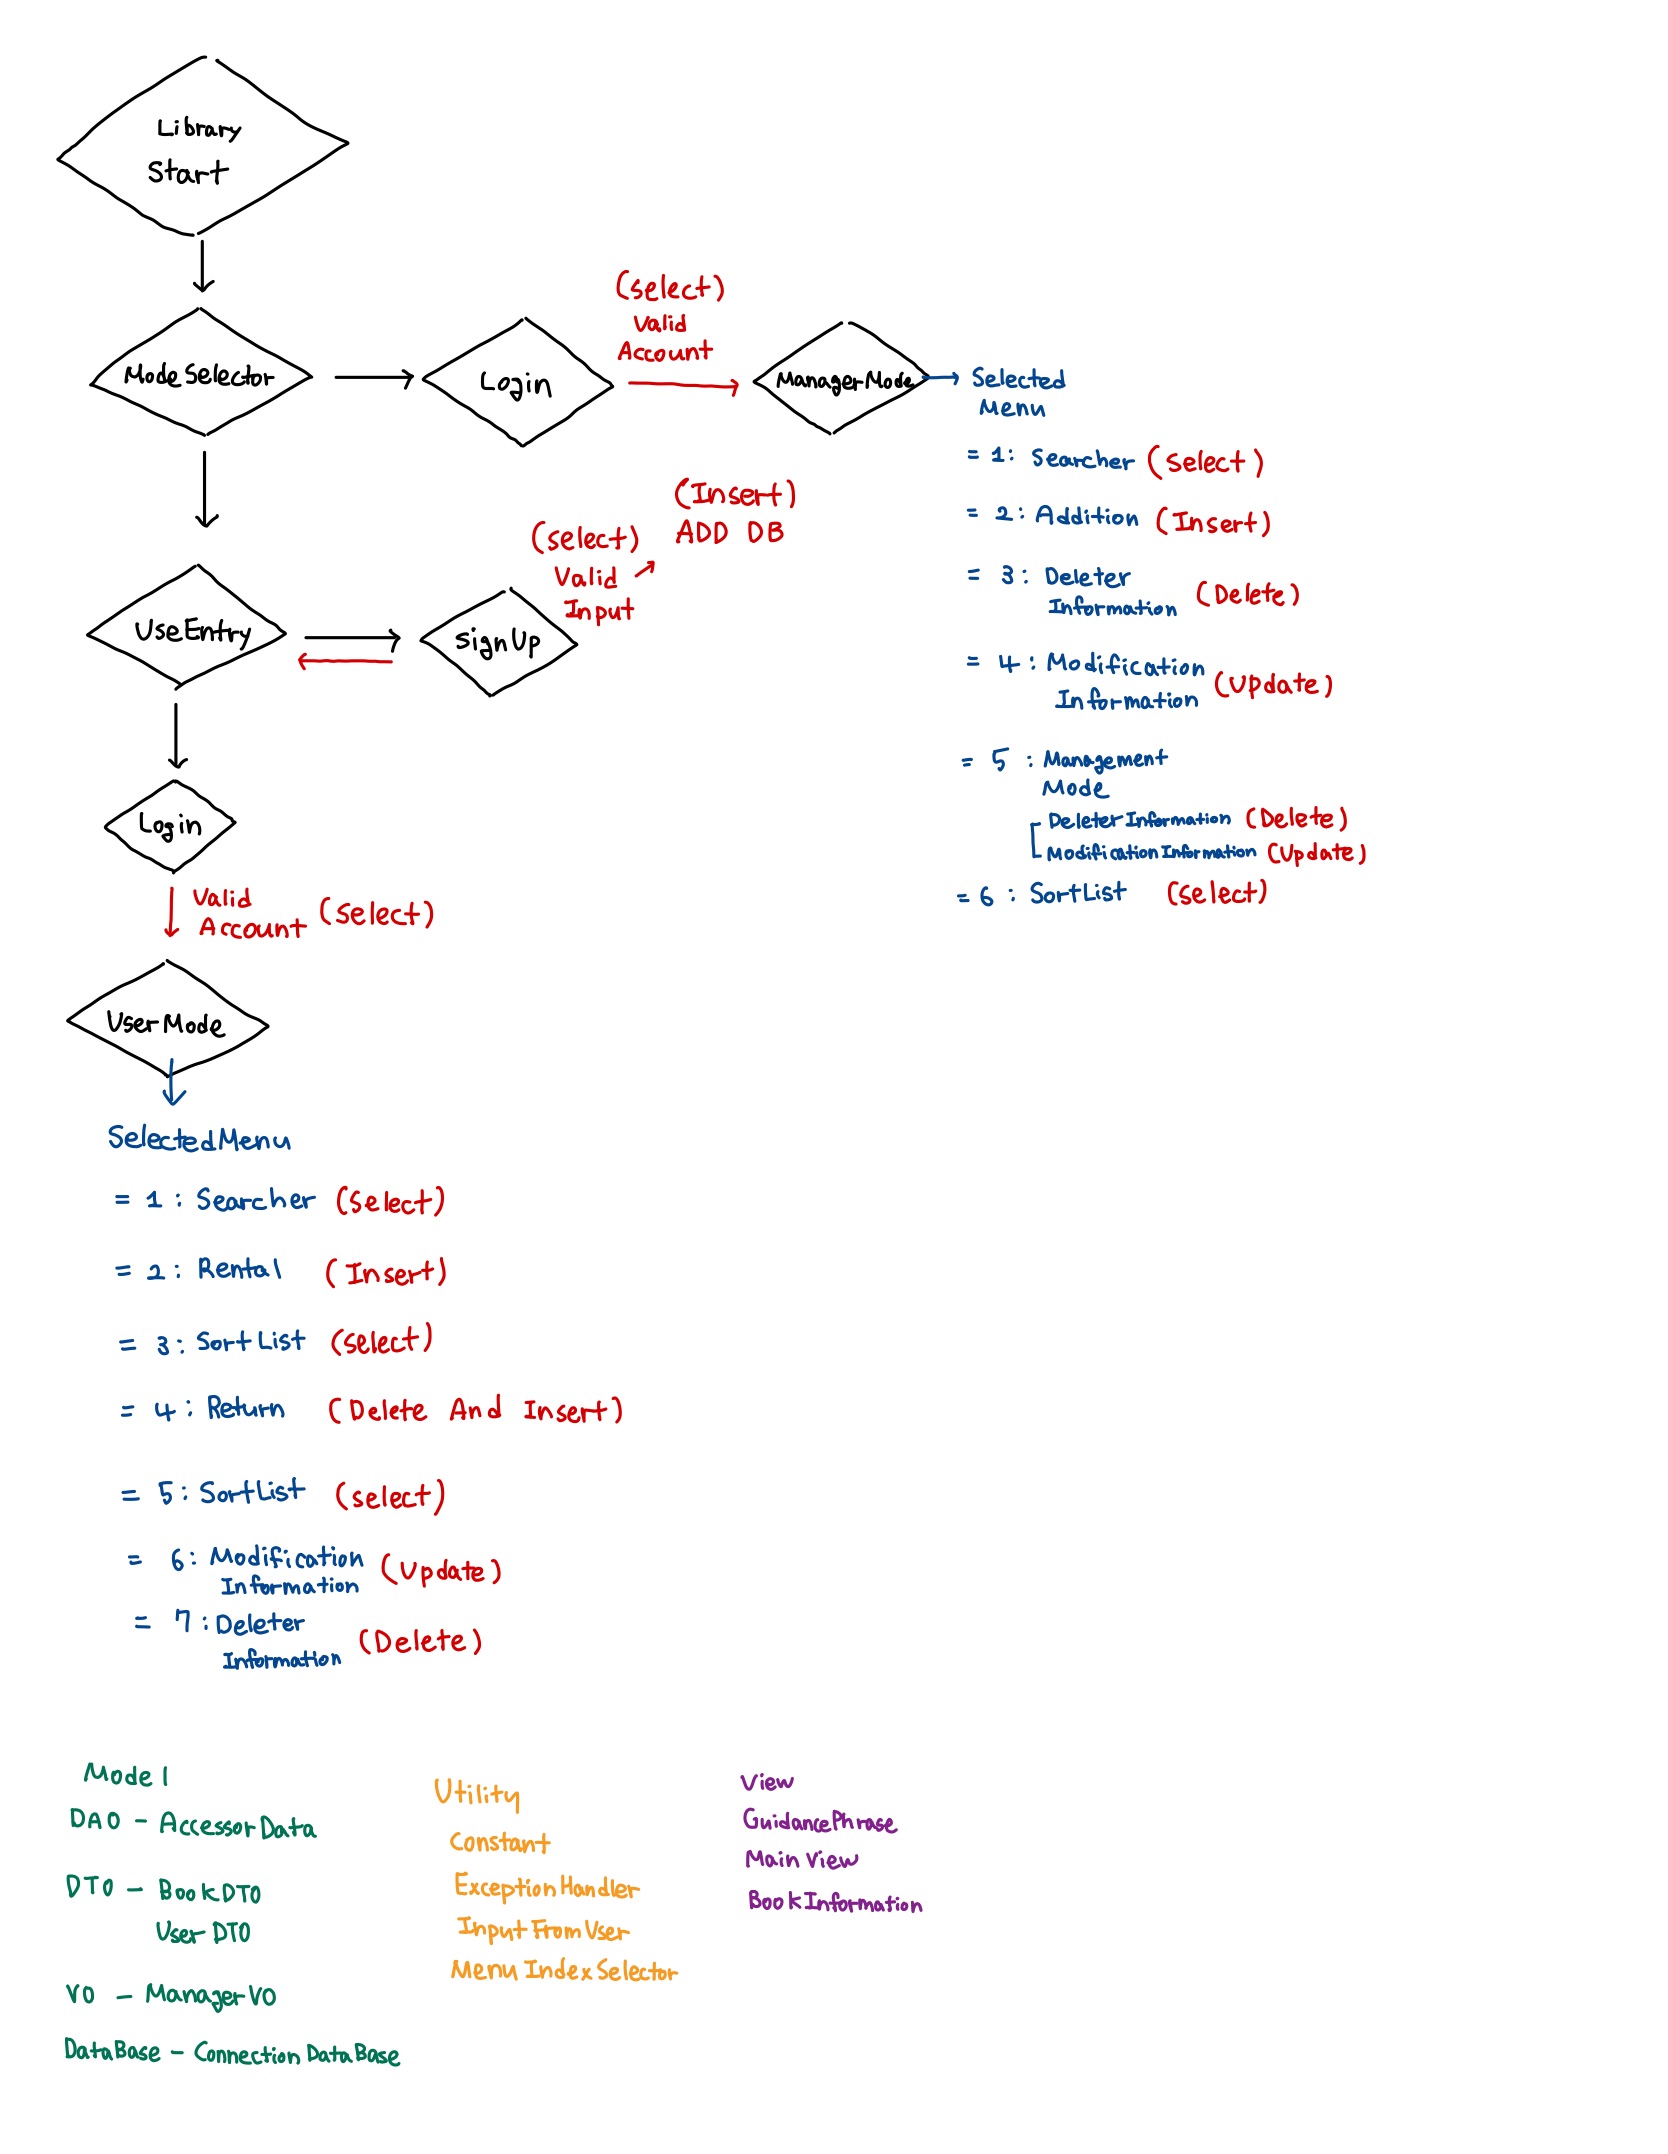 Library
Start
ModeSelector
Login
(select)
Valid
Account
ManagerMode
Selected
Menu
= 1: Searcher (Select)
= 2: Addition (Insert)
= 3: Deleter
Information (Delete)
= 4: Modification
Information (Update)
= 5 : Management
Mode
DeleterInformation (Delete)
ModificationInformation (Update)
= 6 : SortList (Select)
UseEntry
SignUp
(select)
Valid
Input
(Insert)
ADD DB
Login
Valid
Account (Select)
UserMode
SelectedMenu
= 1 : Searcher (Select)
= 2 : Rental (Insert)
= 3 : SortList (Select)
= 4 : Return (Delete And Insert)
= 5 : SortList (select)
= 6 : Modification
Information (Update)
= 7 : Deleter
Information (Delete)
Model
DAO - AccessorData
DTO - BookDTO
UserDTO
VO - ManagerVO
DataBase - ConnectionDataBase
Utility
Constant
ExceptionHandler
InputFromUser
MenuIndexSelector
View
GuidancePhrase
MainView
BookInformation